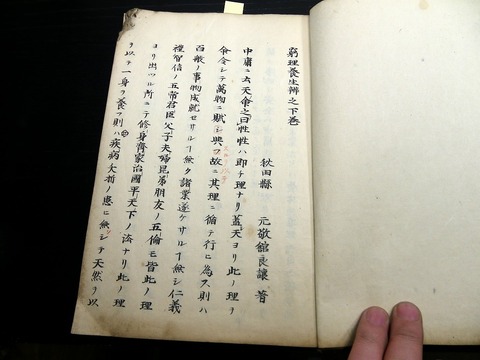 窮理養生辨之下巻
秋田縣 元敬舘良讓著
中庸ニ云天命之曰性性ハ即チ理ナリ蓋天ヨリ此ノ理ヲ
命令シテ萬物ニ賦シ與フ故ニ其理ニ循テ行ニ為ス則ハ
百般ノ事物成就セサルヿ無ク諸業遂ケサルヿ無シ仁義
禮智信ノ五常君臣父子夫婦昆弟朋友ノ五倫モ皆此ノ理
ヨリ出ツル所ニテ修身齊家治國平天下ノ法ナリ此ノ理
ヲ以テ一身ヲ養フ則ハ疾病夭折ノ患ニ無シテ天然ヲ以